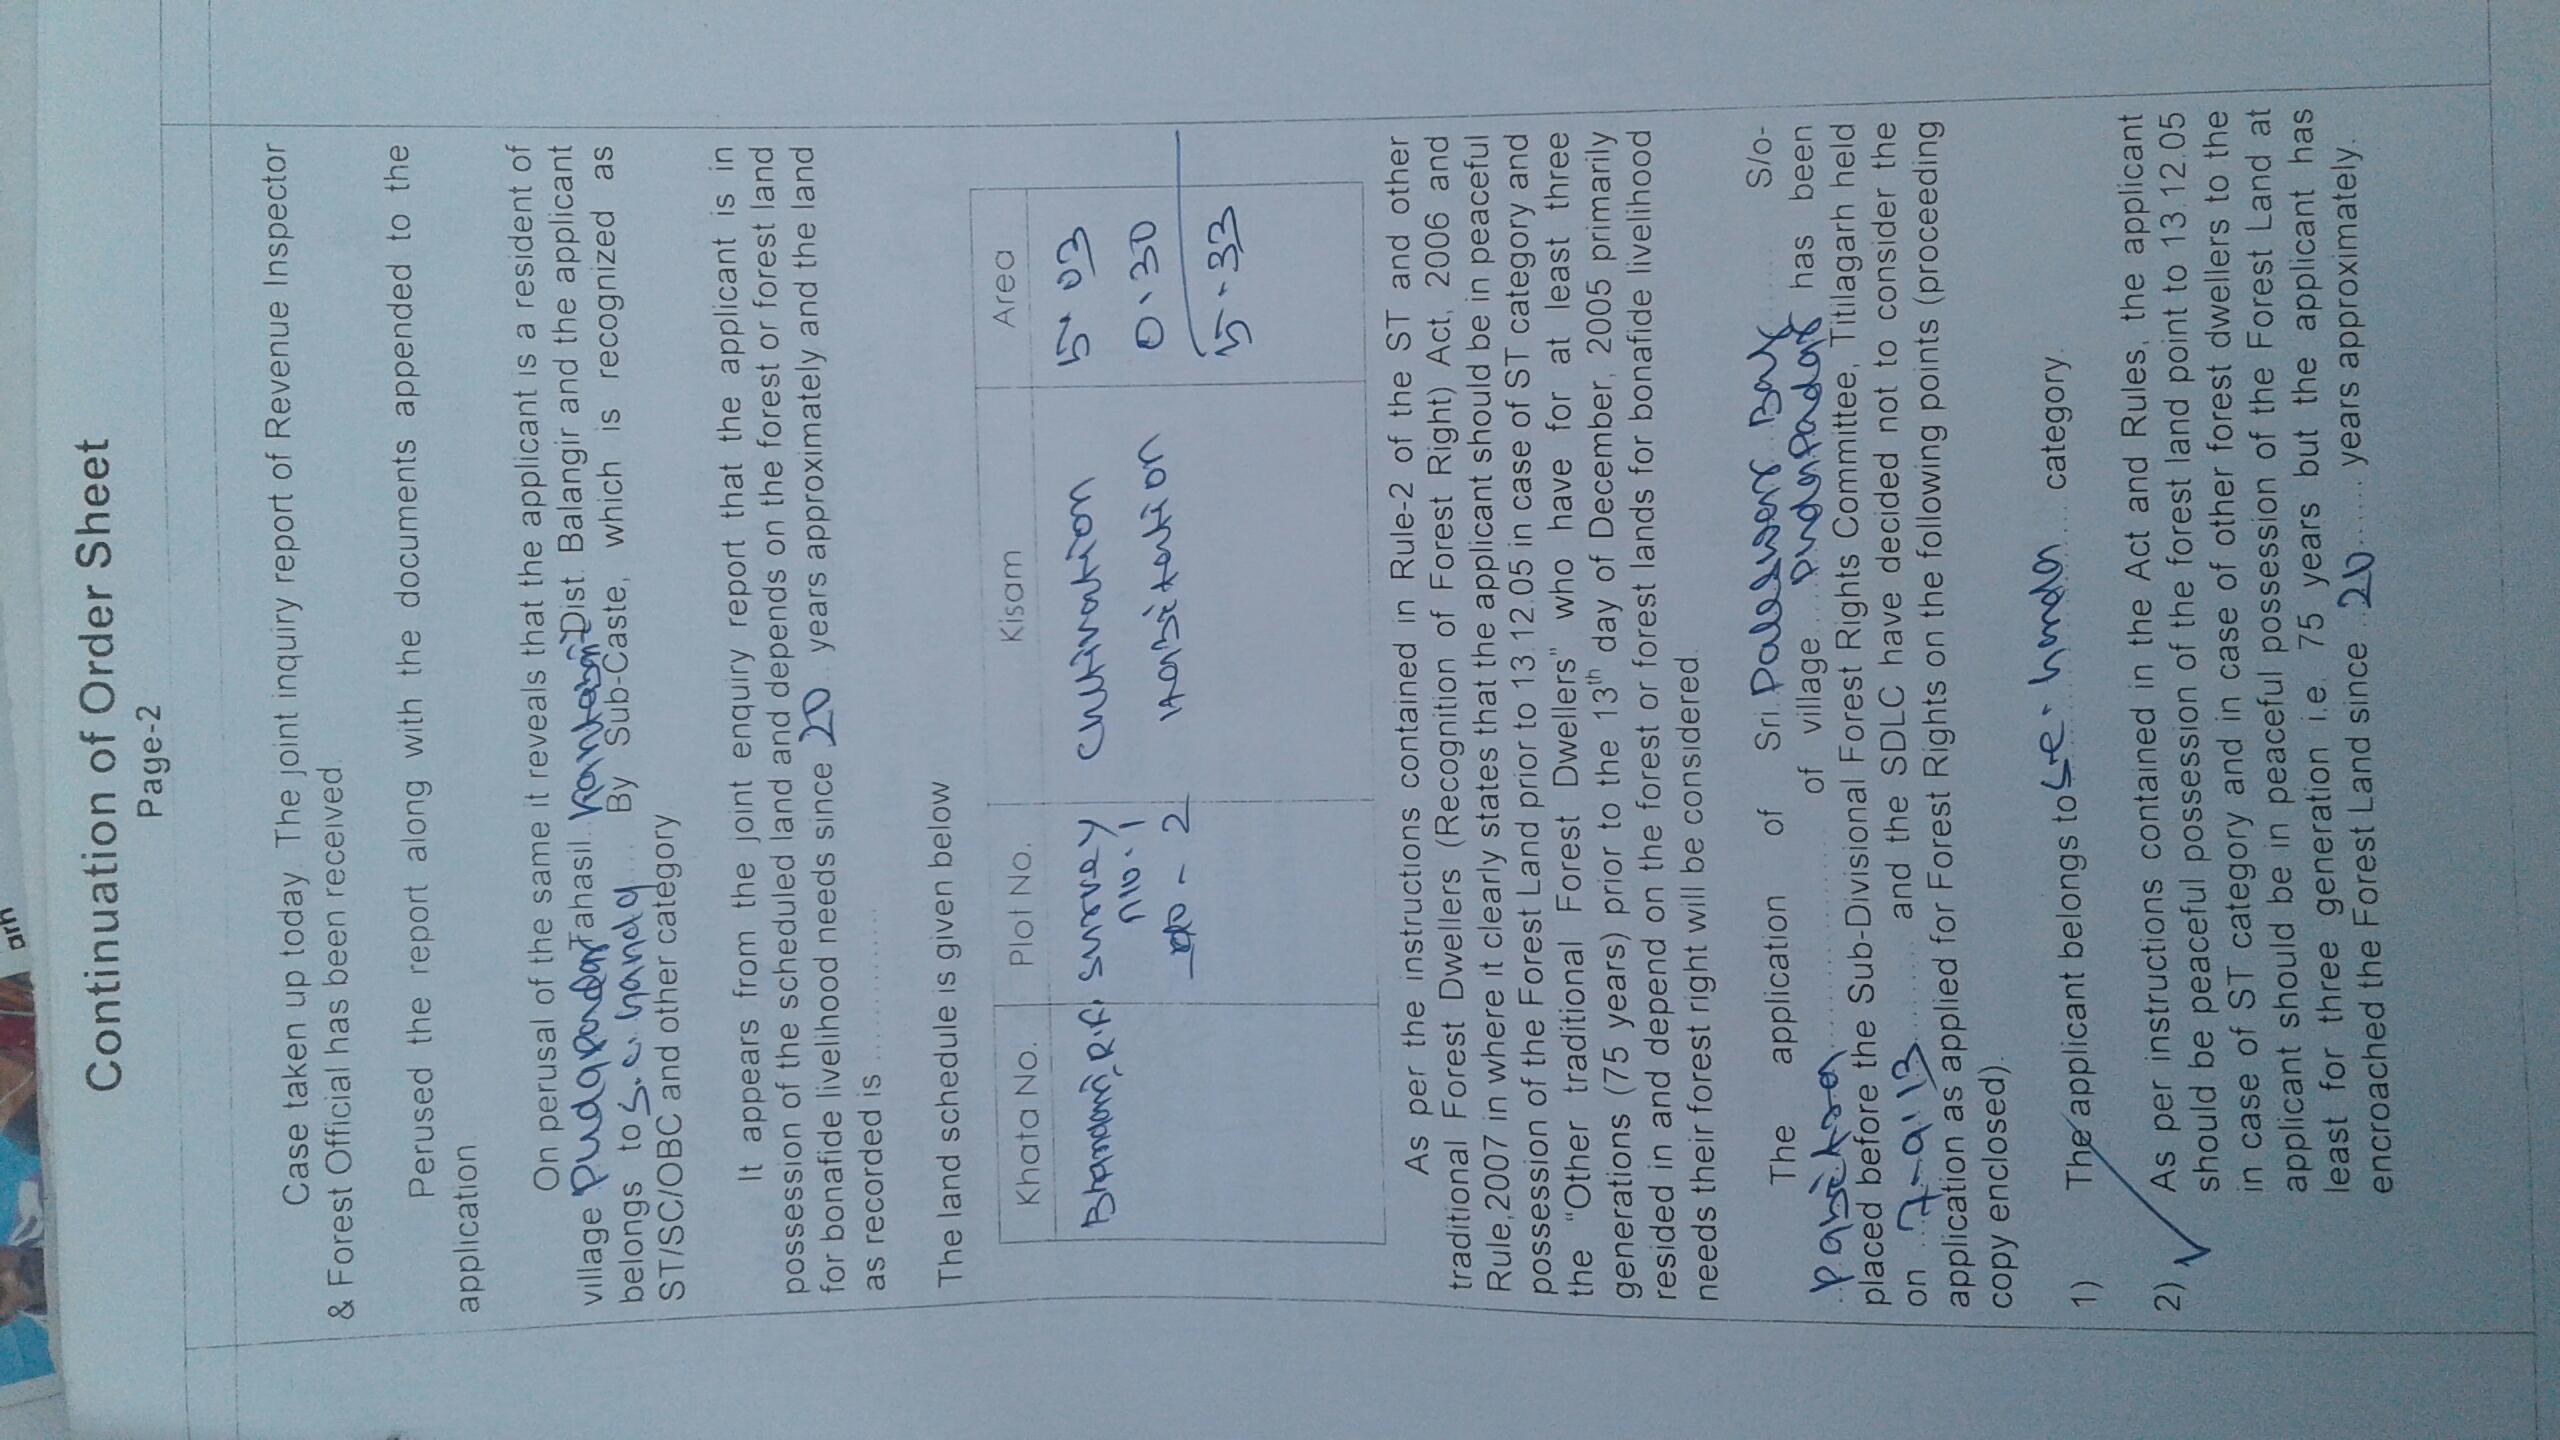 Continuation of Order Sheet
Page-2
Case taken up today. The joint inquiry report of Revenue Inspector
& Forest Official has been received.
Perused the report along with the documents appended to the
application
On perusal of the same it reveals that the applicant is a resident of
village Tahasil Dist. Balangir and the applicant
belongs to S.C. By Sub-Caste, which is recognized as
ST/SC/OBC and other category
It appears from the joint enquiry report that the applicant is in
possession of the scheduled land and depends on the forest or forest land
for bonafide livelihood needs since 20 years approximately and the land
as recorded is ............
The land schedule is given below
Khata No. Plot No. Kisam Area
survey cultivation 5.03
no. 1
do - 2 Habitation 0.30
5.33
As per the instructions contained in Rule-2 of the ST and other
traditional Forest Dwellers (Recognition of Forest Right) Act, 2006 and
Rule,2007 in where it clearly states that the applicant should be in peaceful
possession of the Forest Land prior to 13.12.05 in case of ST category and
the "Other traditional Forest Dwellers" who have for at least three
generations (75 years) prior to the 13th day of December, 2005 primarily
resided in and depend on the forest or forest lands for bonafide livelihood
needs their forest right will be considered.
The application of Sri. S/o-
of village has been
placed before the Sub-Divisional Forest Rights Committee, Titilagarh held
on and the SDLC have decided not to consider the
application as applied for Forest Rights on the following points (proceeding
copy enclosed).
1) The applicant belongs to category.
2) As per instructions contained in the Act and Rules, the applicant
should be peaceful possession of the forest land point to 13.12.05
in case of ST category and in case of other forest dwellers to the
applicant should be in peaceful possession of the Forest Land at
least for three generation i.e. 75 years but the applicant has
encroached the Forest Land since 20 years approximately.